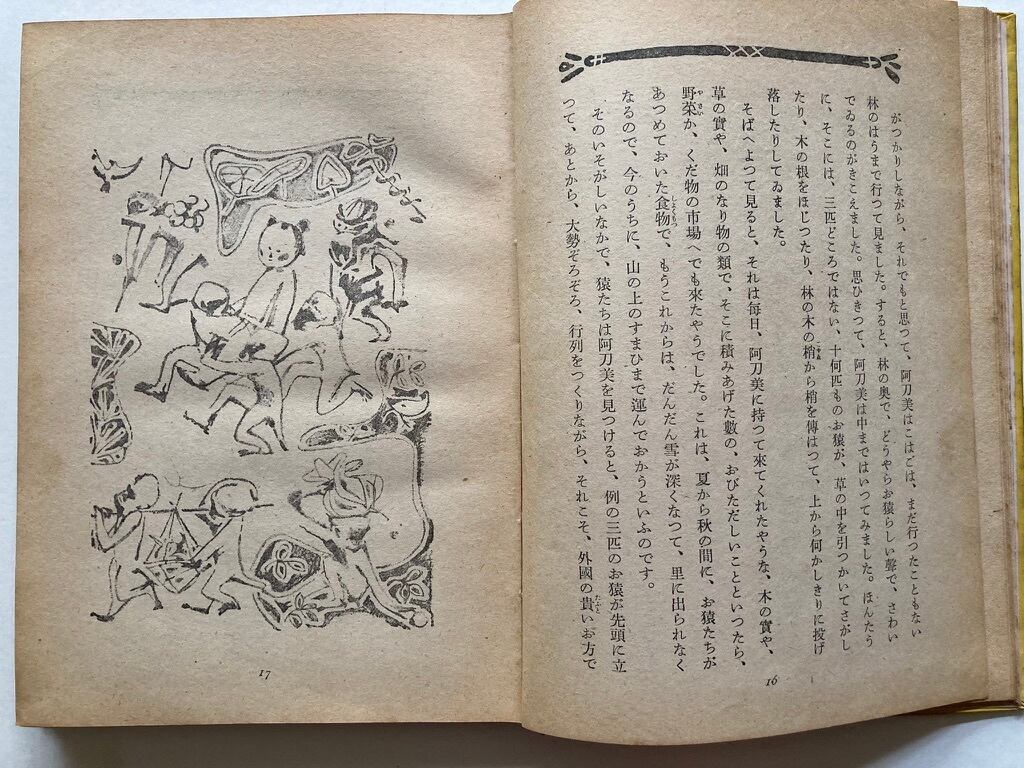 がつかりしながら、それでもと思つて、阿刀美はこはごは、まだ行つたこともない
林のはうまで行つて見ました。すると、林の奥で、どうやらお猿らしい聲で、さわい
でゐるのがきこえました。思ひきつて、阿刀美は中まではいつてみました。ほんたう
に、そこには、三匹どころではない、十何匹ものお猿が、草の中を引つかいてさがし
たり、木の根をほじつたり、林の木の梢から梢を傳はつて、上から何かしきりに投げ
落したりしてゐました。
そばへよつて見ると、それは毎日、阿刀美に持つて來てくれたやうな、木の實や、
草の實や、畑のなり物の類で、そこに積みあげた數の、おびただしいことといつたら、
野菜か、くだ物の市場へでも來たやうでした。これは、夏から秋の間に、お猿たちが
あつめておいた食物で、もうこれからは、だんだん雪が深くなつて、里に出られなく
なるので、今のうちに、山の上のすまひまで運んでおかうといふのです。
そのいそがしいなかで、猿たちは阿刀美を見つけると、例の三匹のお猿が先頭に立
つて、あとから、大勢ぞろぞろ、行列をつくりながら、それこそ、外國の貴いお方で
16
17